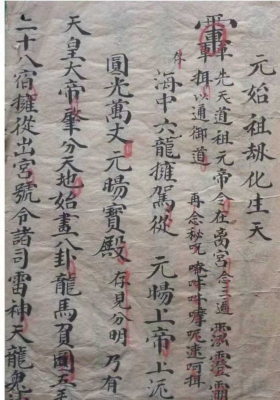 元始祖劫化生天
軍先天道祖元帝令在离宮念三通
軍揖以通御道
再念秘咒
海中六龍擁駕從 元暘上帝上元
圓光萬丈元暘寶殿 存見分明乃有
天皇大帝肇分天地始畫八卦龍馬負圖五
二十八宿擁從出宮號令諸司雷神天龍鬼